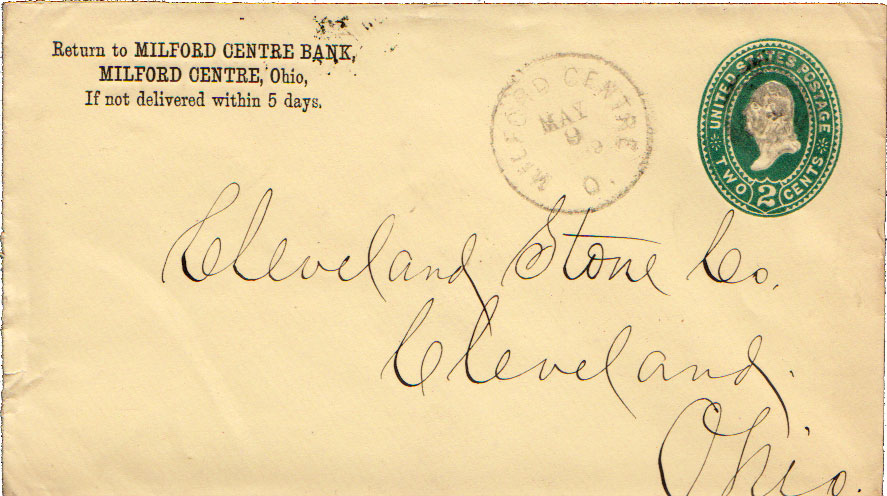 Return to MILFORD CENTRE BANK,
MILFORD CENTRE, Ohio,
If not delivered within 5 days.
MILFORD CENTRE O.
MAY
9
UNITED STATES POSTAGE
TWO 2 CENTS
Cleveland Stone Co.
Cleveland.
Ohio.